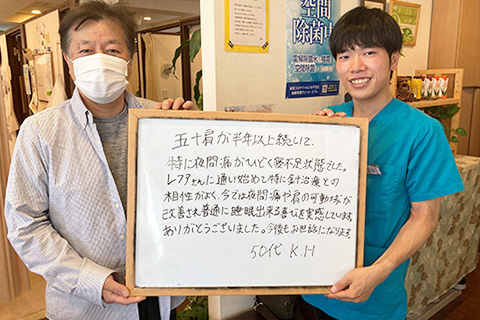 空間
除菌中
五十肩が半年以上続いて、
特に夜間痛がひどく寝不足状態でした。
レフアさんに通い始めて特に針治療との
相性がよく、今では夜間痛や肩の可動域が
改善され普通に睡眠出来る喜びを実感しています。
ありがとうございました。今後もお世話になります
50代 K.H